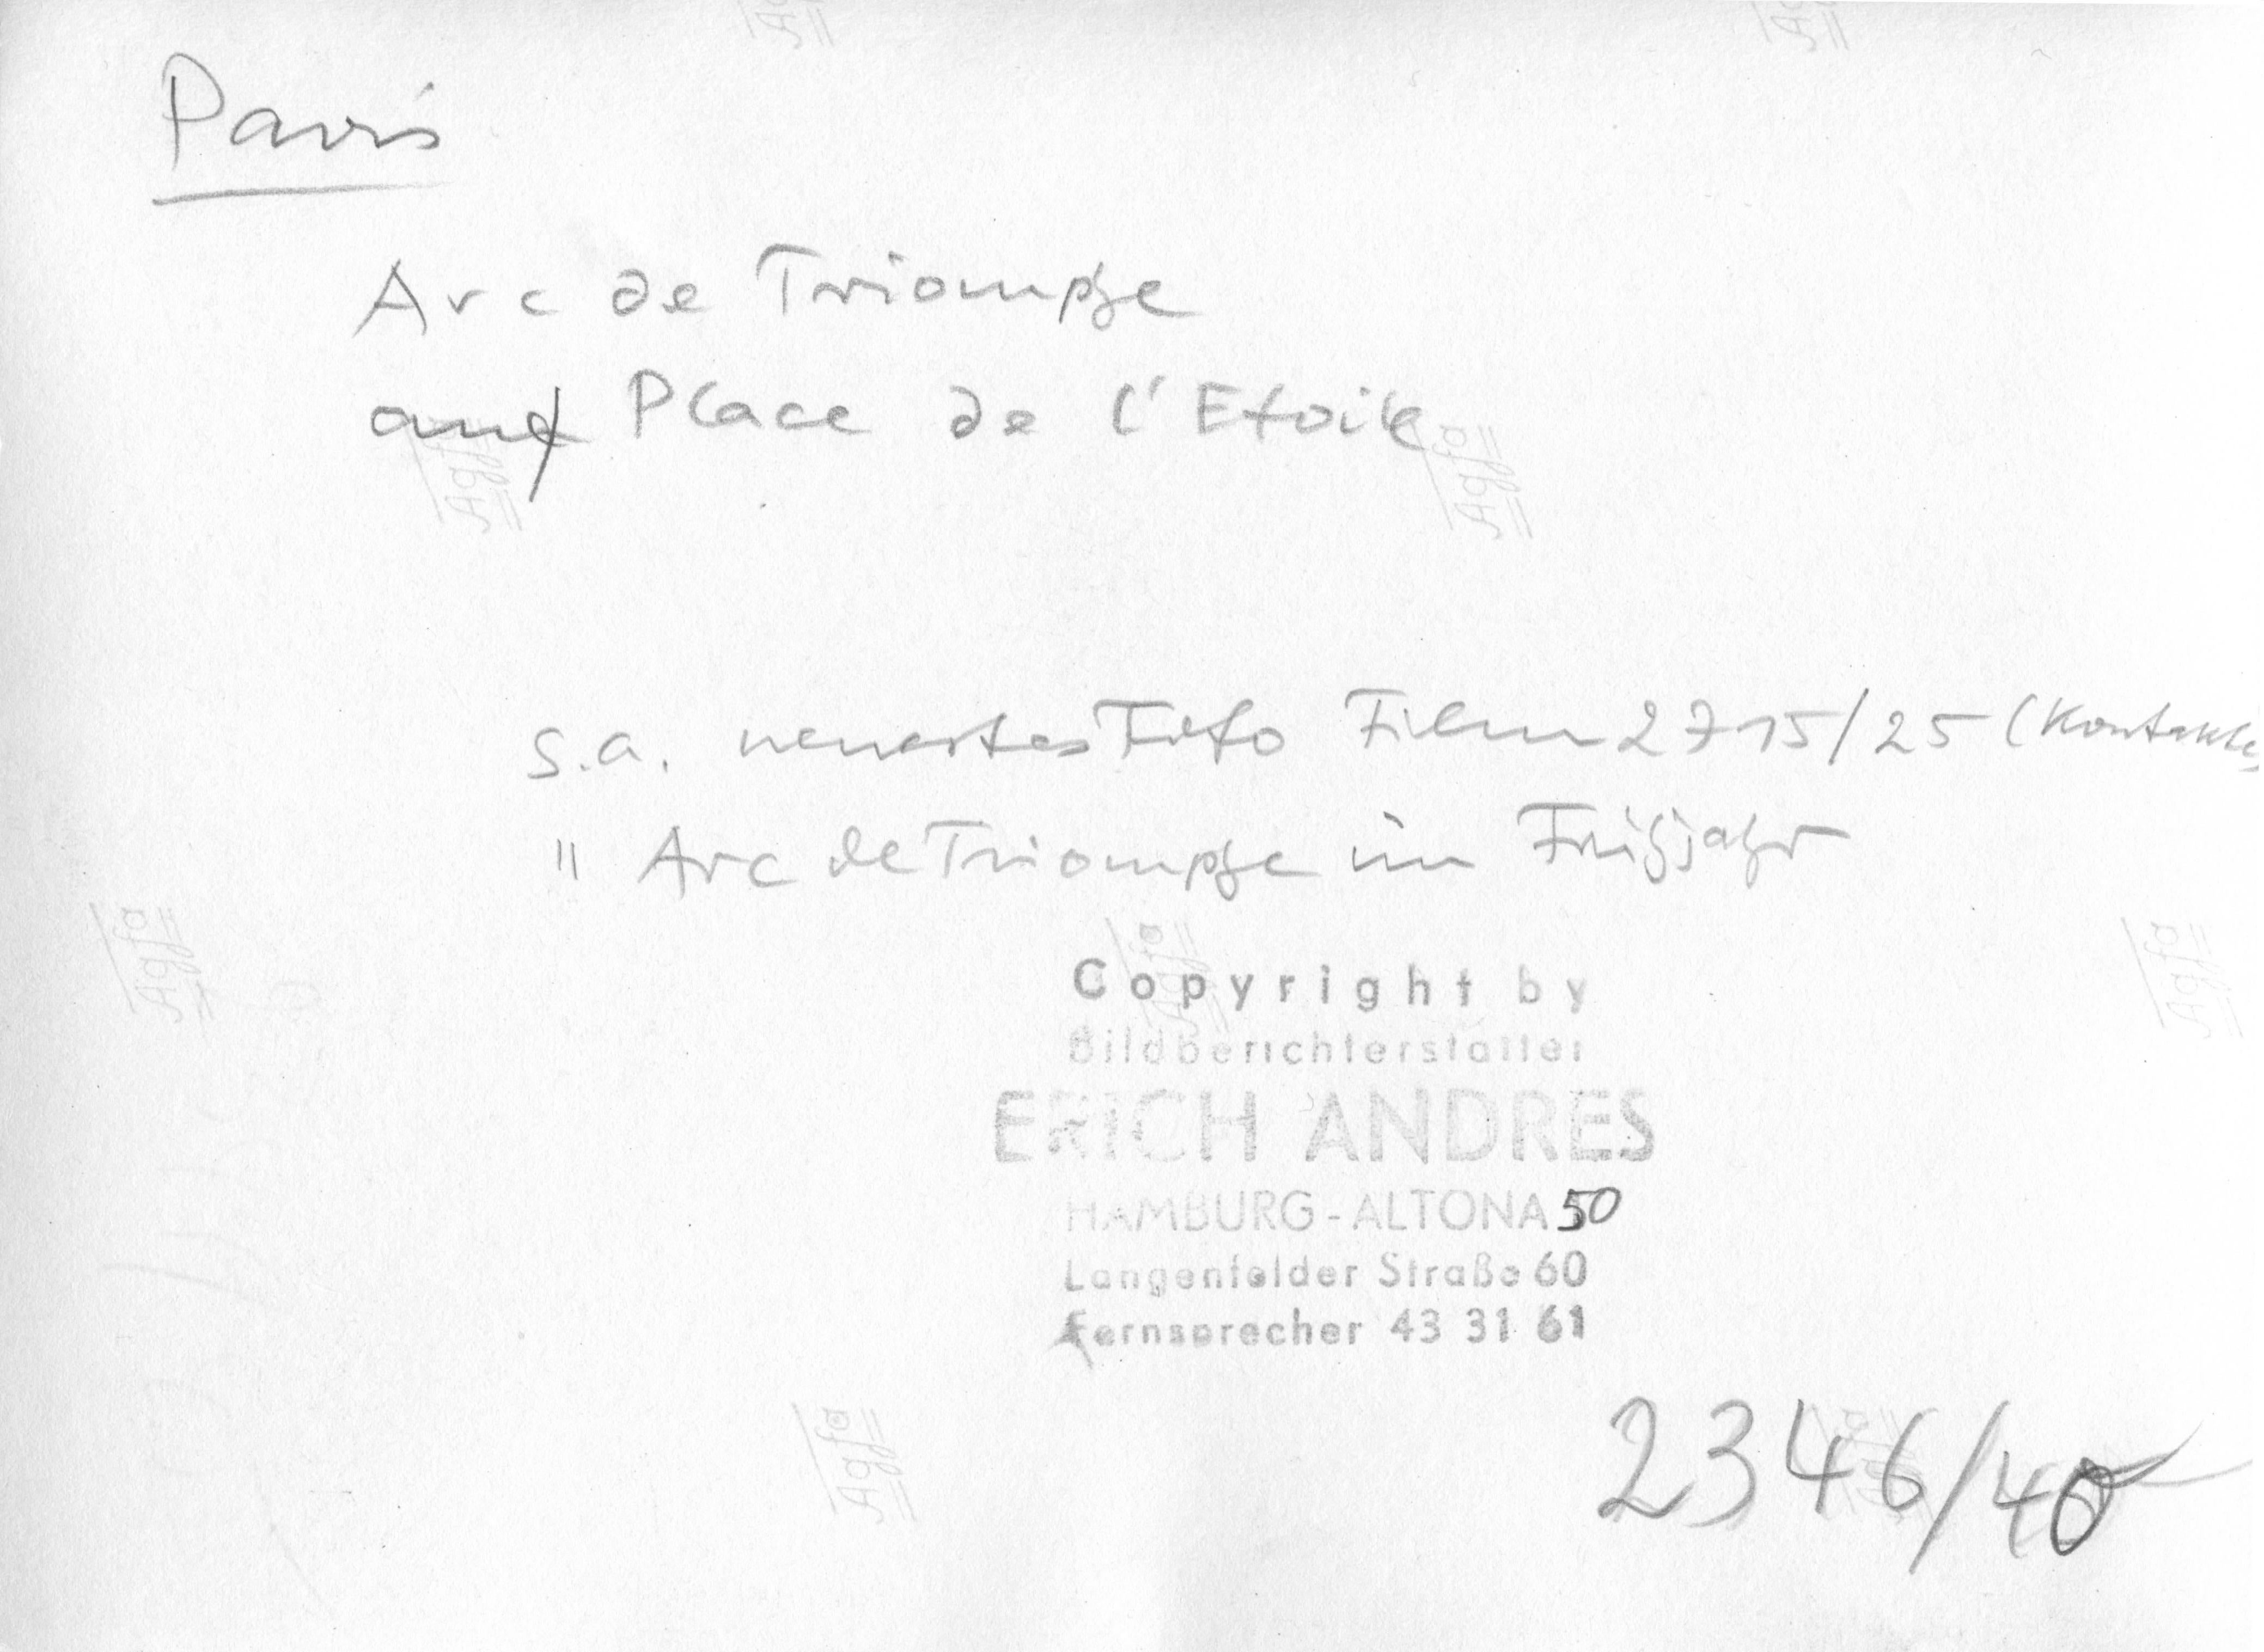 Paris
Arc de Triomphe
auf Place de l'Etoile
s.a. neuestes Foto Film 2715/25 (Kontakte
" Arc de Triomphe im Frühjahr
Copyright by
Bildberichterstatter
ERICH ANDRES
HAMBURG-ALTONA 50
Langenfelder Straße 60
Fernsprecher 43 31 61
2346/40
Agfa
Agfa
Agfa
Agfa
Agfa
Agfa